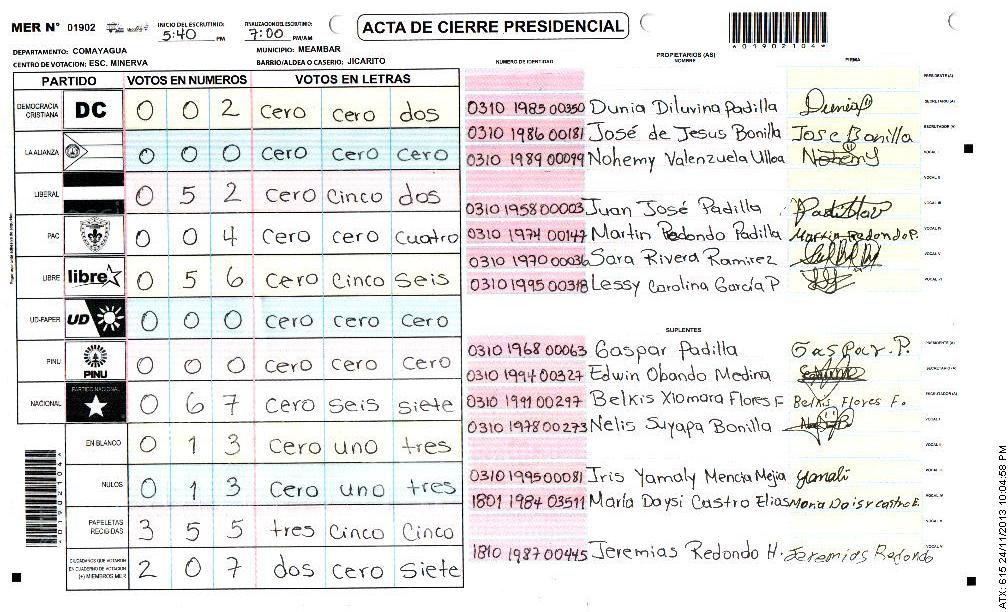 MER N° 01902
INICIO DEL ESCRUTINIO: 5:40 PM
FINALIZACION DEL ESCRUTINIO: 7:00 PM/AM
ACTA DE CIERRE PRESIDENCIAL
*01902104*
DEPARTAMENTO: COMAYAGUA
MUNICIPIO: MEAMBAR
CENTRO DE VOTACION: ESC. MINERVA
BARRIO/ALDEA O CASERIO: JICARITO
PARTIDO VOTOS EN NUMEROS VOTOS EN LETRAS
DEMOCRACIA CRISTIANA DC 0 0 2 cero cero dos
LA ALIANZA 0 0 0 cero cero cero
LIBERAL 0 5 2 cero cinco dos
PAC 0 0 4 cero cero cuatro
LIBRE libre 0 5 6 cero cinco seis
UD-FAPER UD 0 0 0 cero cero cero
PINU PINU 0 0 0 cero cero cero
NACIONAL PARTIDO NACIONAL 0 6 7 cero seis siete
EN BLANCO 0 1 3 cero uno tres
NULOS 0 1 3 cero uno tres
PAPELETAS RECIBIDAS 3 5 5 tres cinco cinco
CIUDADANOS QUE VOTARON EN CUADERNO DE VOTACION (+) MIEMBROS MER 2 0 7 dos cero siete
*01902104*
PROPIETARIOS (AS)
NUMERO DE IDENTIDAD NOMBRE FIRMA
PRESIDENTE (A)
0310 1985 00350 Dunia Diluvina Padilla Dunia SECRETARIO (A)
0310 1986 00181 José de Jesus Bonilla Jose Bonilla ESCRUTADOR (A)
0310 1989 00099 Nohemy Valenzuela Ulloa Nohemy VOCAL I
VOCAL II
0310 1958 00003 Juan José Padilla VOCAL III
0310 1974 00147 Martin Redondo Padilla Martin Redondo P. VOCAL IV
0310 1970 00036 Sara Rivera Ramirez VOCAL V
0310 1995 00318 Lessy Carolina García P VOCAL VI
SUPLENTES
0310 1968 00063 Gaspar Padilla Gaspar. P. PRESIDENTE (A)
0310 1994 00327 Edwin Obando Medina SECRETARIO (A)
0310 1991 00297 Belkis Xiomara Flores F Belkis Flores F. ESCRUTADOR (A)
0310 1978 00273 Nelis Suyapa Bonilla VOCAL I
VOCAL II
0310 1995 00081 Iris Yamaly Mencia Mejia Yamali VOCAL III
1801 1984 03511 María Daysi Castro Elias Maria Daisy castro E. VOCAL IV
VOCAL V
1810 1987 00445 Jeremias Redondo H. Jeremias Redondo VOCAL VI
ATX: 615 24/11/2013 10:04:58 PM